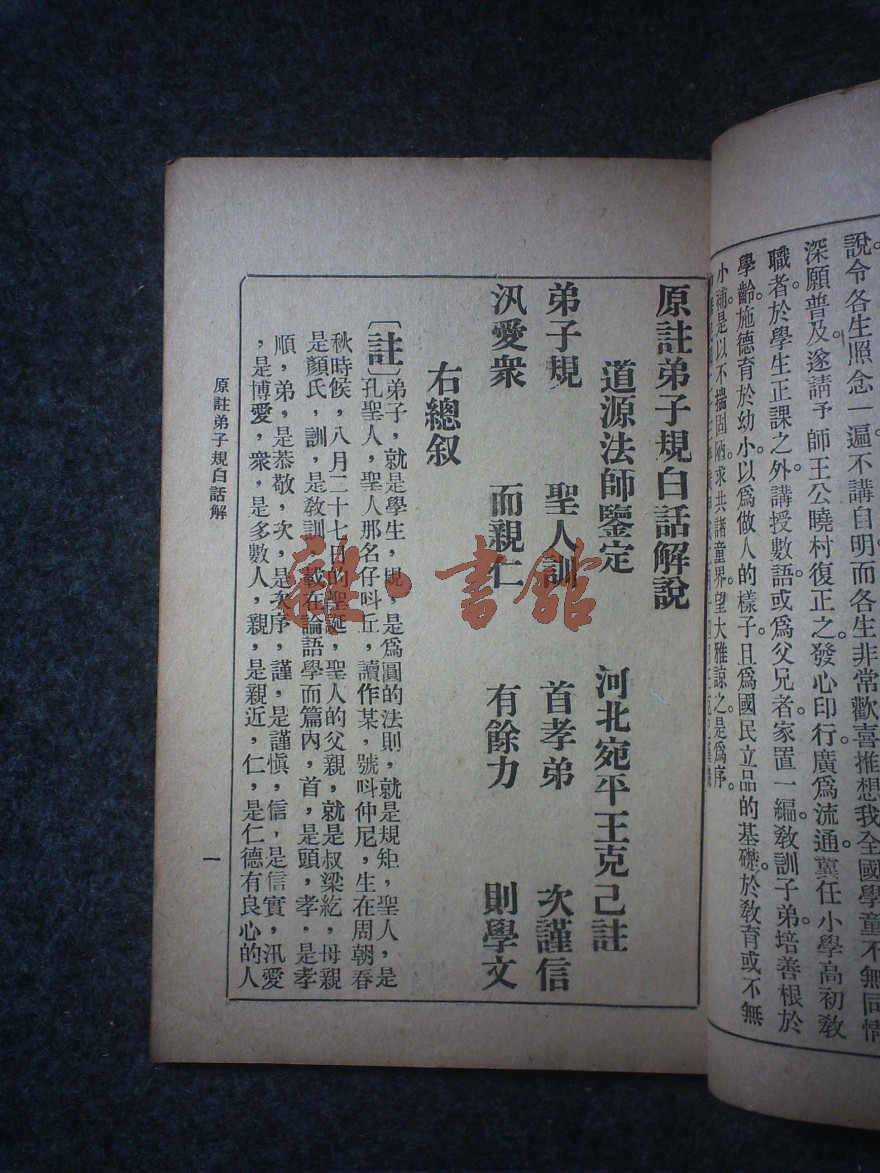 說。令各生照念一遍。不講自明。而各生非常歡喜。推想我全國學童不無同情
深願普及。遂請予師王公曉村復正之。發心印行。廣爲流通。冀任小學高初教
職者。於學生正課之外。講授數語。或爲父兄者。家置一編。教訓子弟。培善根於
學齡。施德育於幼小。以爲做人的樣子。且爲國民立品的基礎。於教育或不無
小補。是以不揣固陋。求共諸童界。望大雅諒之。是爲序。
原註弟子規白話解說
道源法師鑒定　河北宛平王克己註
弟子規　聖人訓　首孝弟　次謹信
汎愛衆　而親仁　有餘力　則學文
右總叙
〔註〕弟子，就是學生，規，是爲圓的法則，就是規矩，聖人，是
孔聖人，聖人那名仔呌丘，讀作某，號呌仲尼，生在周朝春
秋時候，八月二十七日的聖誕，聖人的父親，就是叔梁紇，母親
是顏氏，訓，是教訓，載在論語學而篇內，首，是頭，孝，是孝
順，弟，是恭敬，次，是次序，謹，是謹愼，信，是信實，汎愛
，是博愛，衆，是多數人，親，是親近，仁，是仁德有良心的人
原註弟子規白話解
一
雜·書館